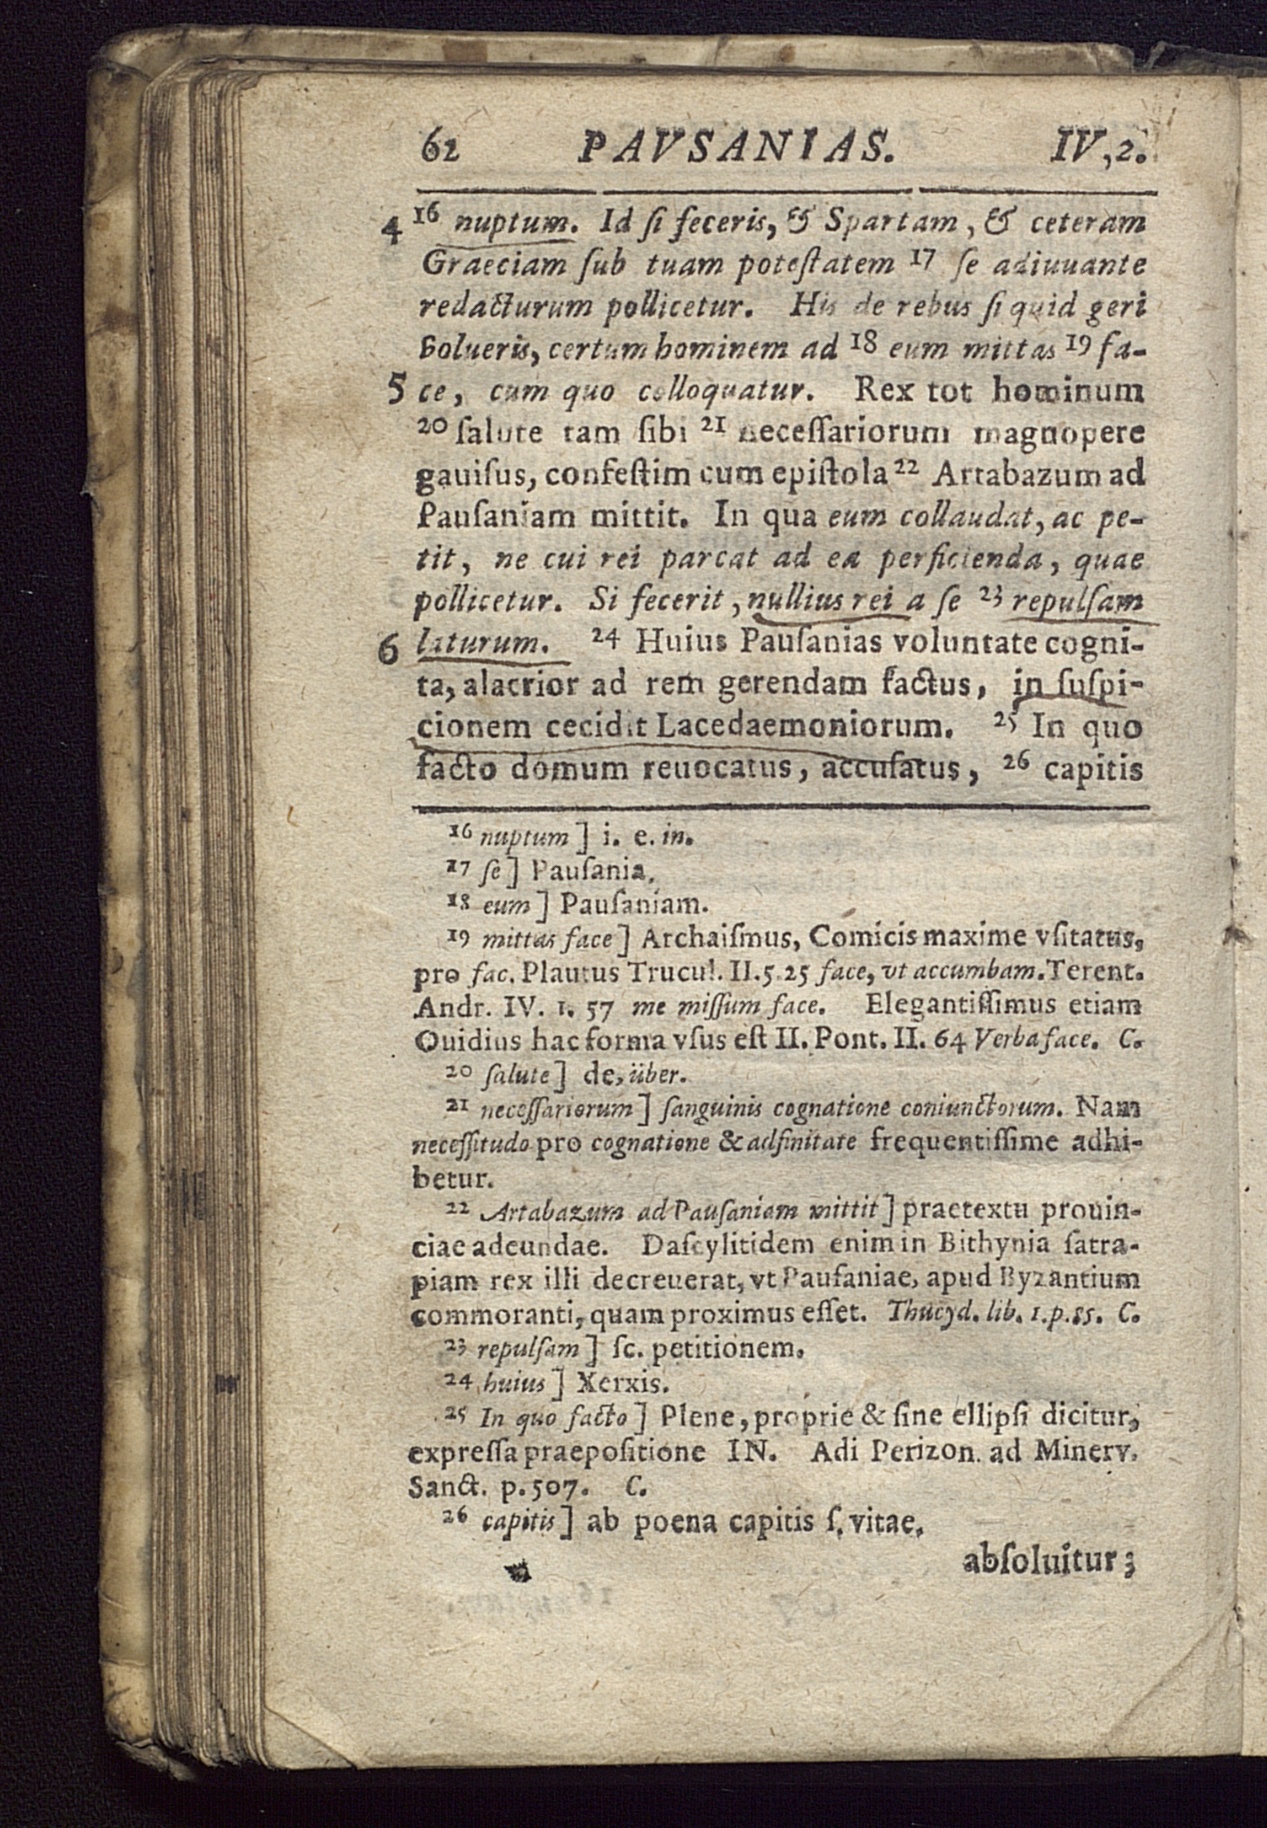 62 PAVSANIAS. IV,2.
4 16 nuptum. Id ſi feceris, & Spartam, & ceteram
Graeciam ſub tuam poteſtatem 17 ſe adiuuante
redacturum pollicetur. His de rebus ſi quid geri
volueris, certum hominem ad 18 eum mittas 19 fa-
5 ce, cum quo colloquatur. Rex tot hominum
20 ſalute tam ſibi 21 neceſſariorum magnopere
gauiſus, confeſtim cum epiſtola 22 Artabazum ad
Pauſaniam mittit. In qua eum collaudat, ac pe-
tit, ne cui rei parcat ad ea perficienda, quae
pollicetur. Si fecerit, nullius rei a ſe 23 repulſam
6 laturum. 24 Huius Pauſanias voluntate cogni-
ta, alacrior ad rem gerendam factus, in ſuſpi-
cionem cecidit Lacedaemoniorum. 25 In quo
facto domum reuocatus, accuſatus, 26 capitis
16 nuptum] i. e. in.
17 ſe] Pauſania.
18 eum] Pauſaniam.
19 mittas face] Archaiſmus, Comicis maxime vſitatus,
pro fac. Plautus Trucul. II. 5. 25 face, vt accumbam. Terent.
Andr. IV. 1. 57 me miſſum face. Elegantiſſimus etiam
Ouidius hac forma vſus eſt II. Pont. II. 64 Verba face. C.
20 ſalute] de, über.
21 neceſſariorum] ſanguinis cognatione coniunctorum. Nam
neceſſitudo pro cognatione & adfinitate frequentiſſime adhi-
betur.
22 Artabazum ad Pauſaniam mittit] praetextu prouin-
ciae adeundae. Daſcylitidem enim in Bithynia ſatra-
piam rex illi decreuerat, vt Pauſaniae, apud Byzantium
commoranti, quam proximus eſſet. Thucyd. lib. 1. p. 85. C.
23 repulſam] ſc. petitionem.
24 huius] Xerxis.
25 In quo facto] Plene, proprie & ſine ellipſi dicitur,
expreſſa praepoſitione IN. Adi Perizon. ad Minerv.
Sanct. p. 507. C.
26 capitis] ab poena capitis ſ. vitae.
abſoluitur;